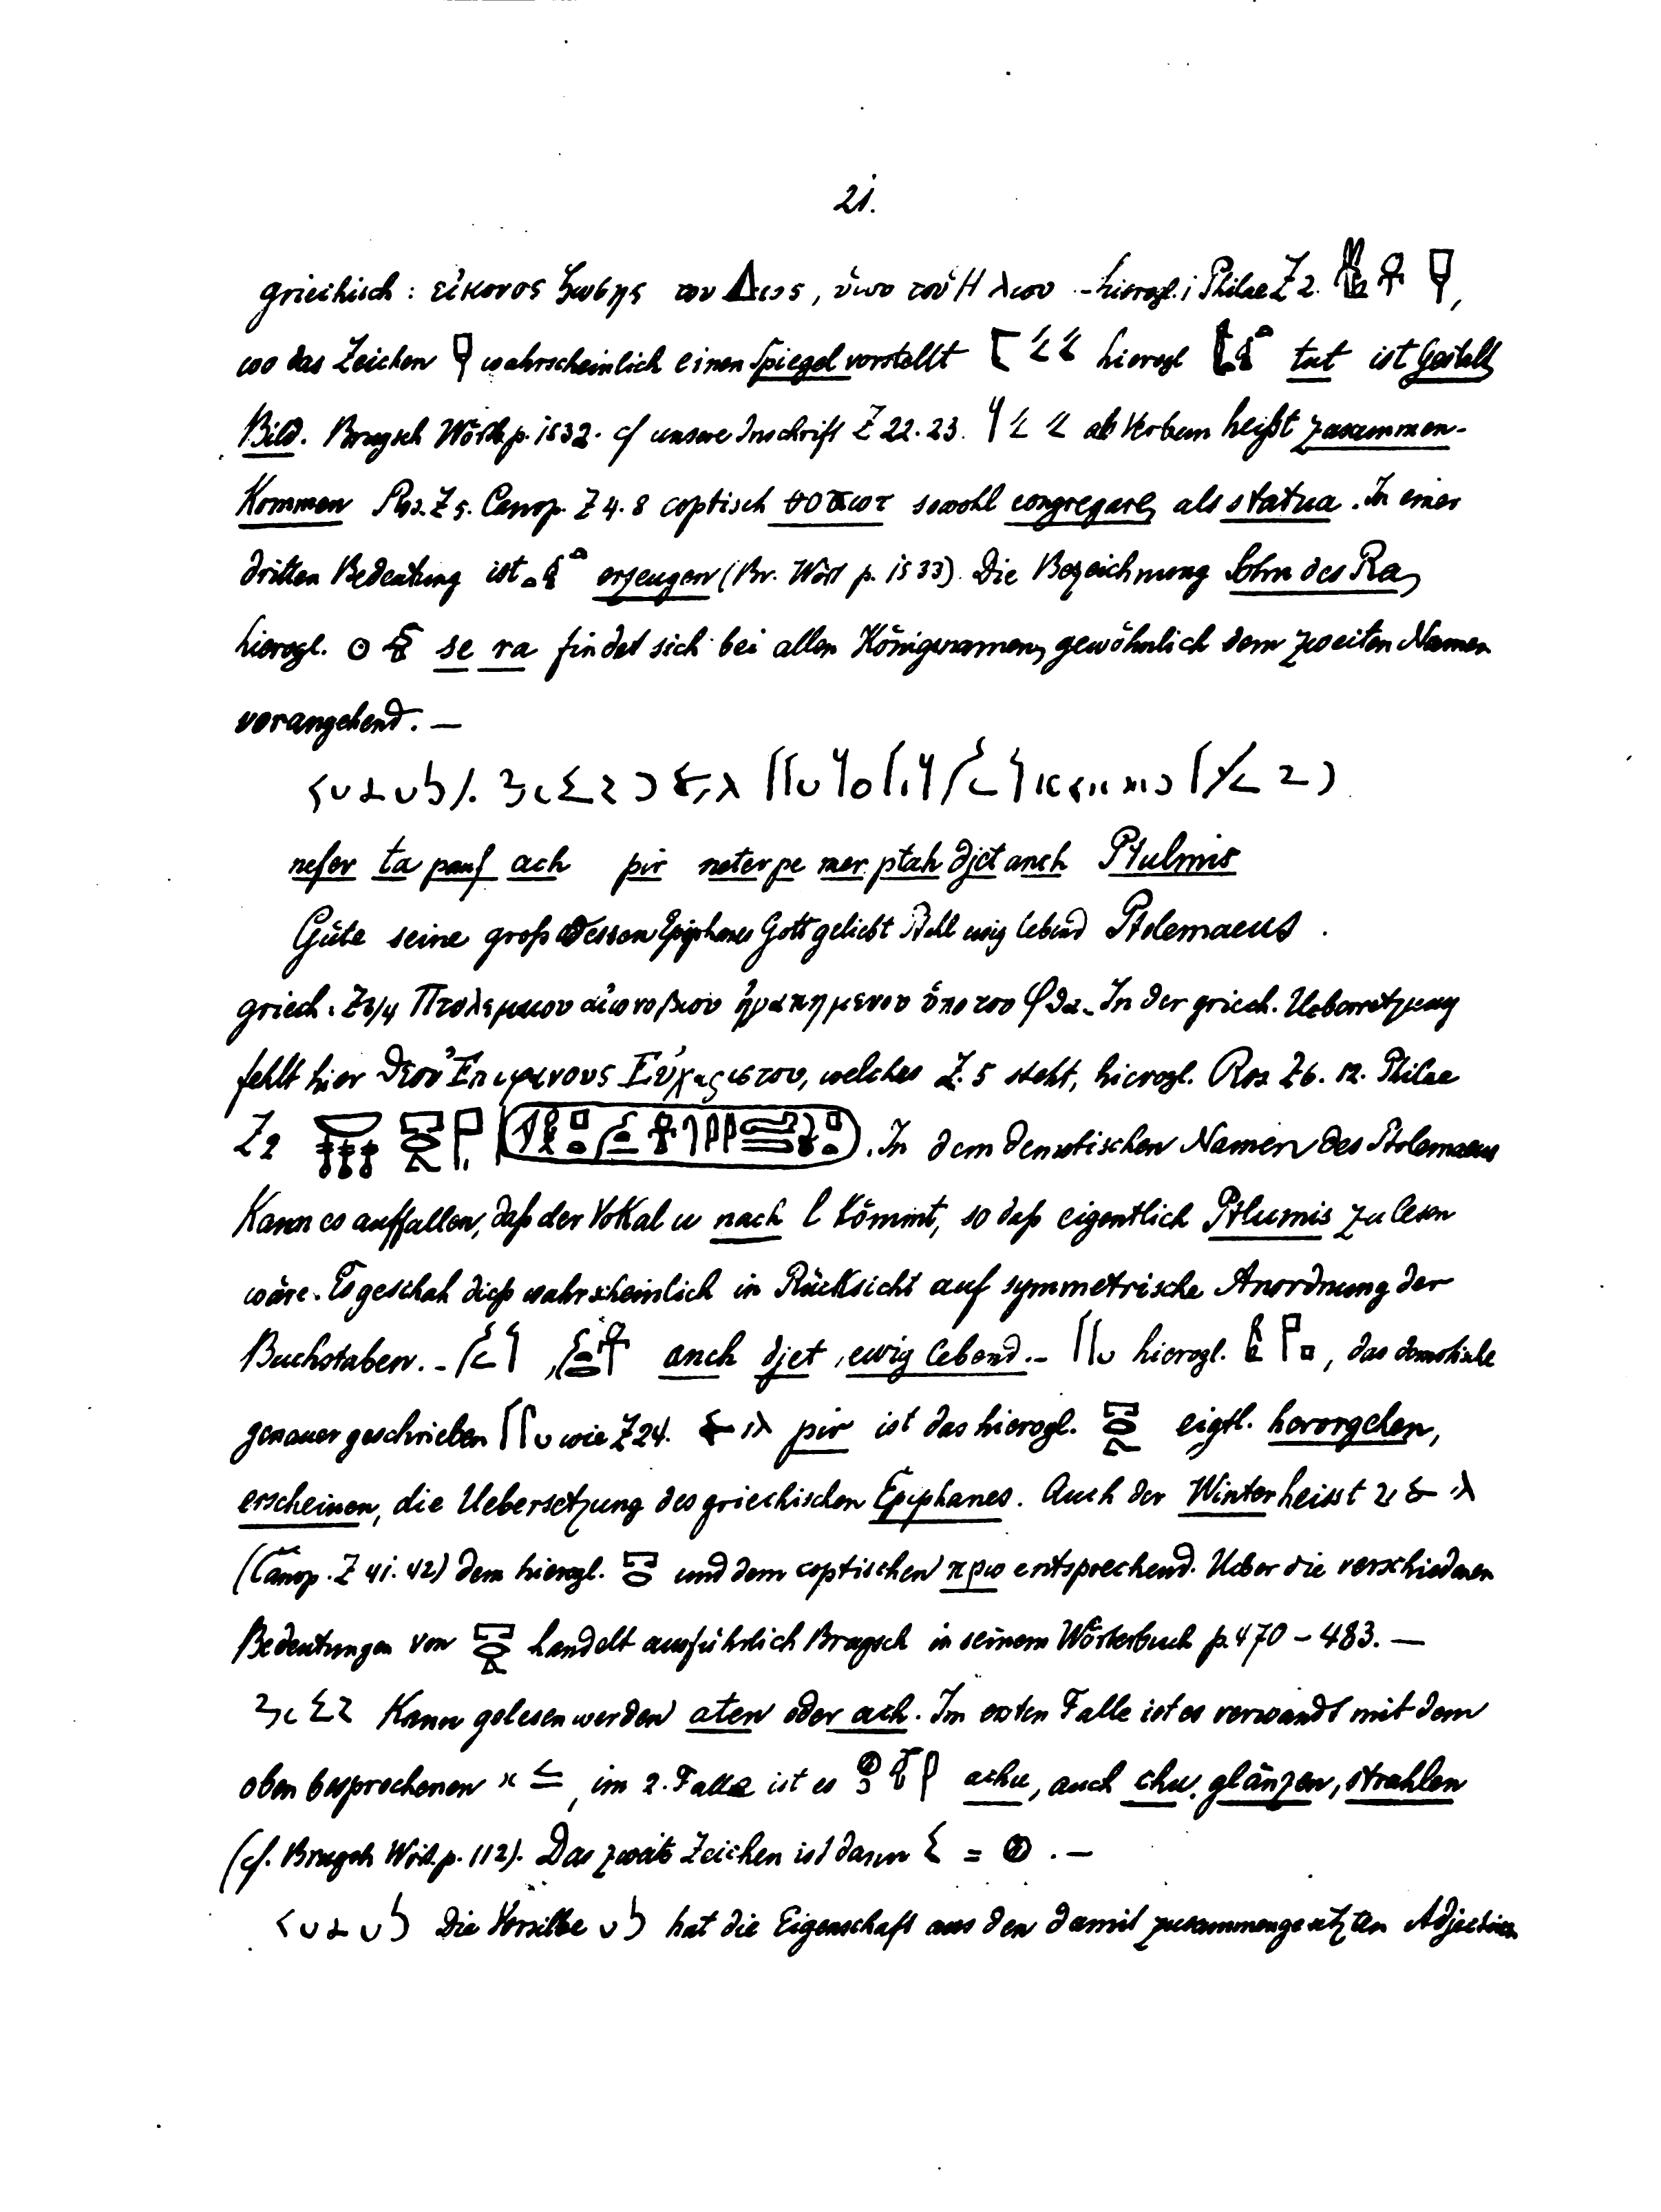 21.
griechisch: εἰκονος ζωσης του Διος, ὑιου τοῦ Ηλιου - hierogl. i Philae Z 2.
wo das Zeichen wahrscheinlich einen Spiegel vorstellt hierogl tut ist Gestalt
Bild. Brugsch Wörtb. p. 1532. cf unsere Inschrift Z 22. 23. als Verbum heißt zusammen-
Kommen Ros. Z 5. Canop. Z 4. 8 coptisch sowohl congregare, als statua. In einer
dritten Bedeutung ist erzeugen (Br. Wört p. 1533). Die Bezeichnung Sohn des Ra,
hierogl. se ra findet sich bei allen Königsnamen, gewöhnlich dem zweiten Namen
vorangehend. —
nefer ta pauf ach pir neter pe mer ptah djet anch Ptulmis
Güte seine groß dessen Epiphanes Gott geliebt Ptah ewig lebend Ptolemaeus.
griech: Z 3/4 Πτολεμαιου αἰωνοβιου ἠγαπημενου ὑπο του Φθα. - In der griech. Uebersetzung
fehlt hier θεοῦ Ἐπιφανους Εὐχαριστου, welches Z. 5 steht, hierogl. Ros Z 6. 12. Philae
Z 2 . In dem demotischen Namen des Ptolemaeus
Kann es auffallen, daß der Vokal u nach l kömmt, so daß eigentlich Ptlumis zu lesen
wäre. Es geschah dieß wahrscheinlich in Rücksicht auf symmetrische Anordnung der
Buchstaben. - , anch djet, ewig lebend. - hierogl. , das demotische
genauer geschrieben wie Z 24. pir ist das hierogl. eigtl. hervorgehen,
erscheinen, die Uebersetzung des griechischen Epiphanes. Auch der Winter heisst
(Canop. Z 41. 42) dem hierogl. und dem coptischen πρω entsprechend. Ueber die verschiedenen
Bedeutungen von handelt ausführlich Brugsch in seinem Wörterbuch p. 470 - 483. —
Kann gelesen werden aten oder ach. Im ersten Falle ist es verwandt mit dem
oben besprochenen , im 2. Falle ist es achu, auch chu, glänzen, strahlen
(cf. Brugsch Wört. p. 112). Das zweite Zeichen ist dann = . —
Die Vorsilbe hat die Eigenschaft aus den damit zusammengesetzten Adjectiven